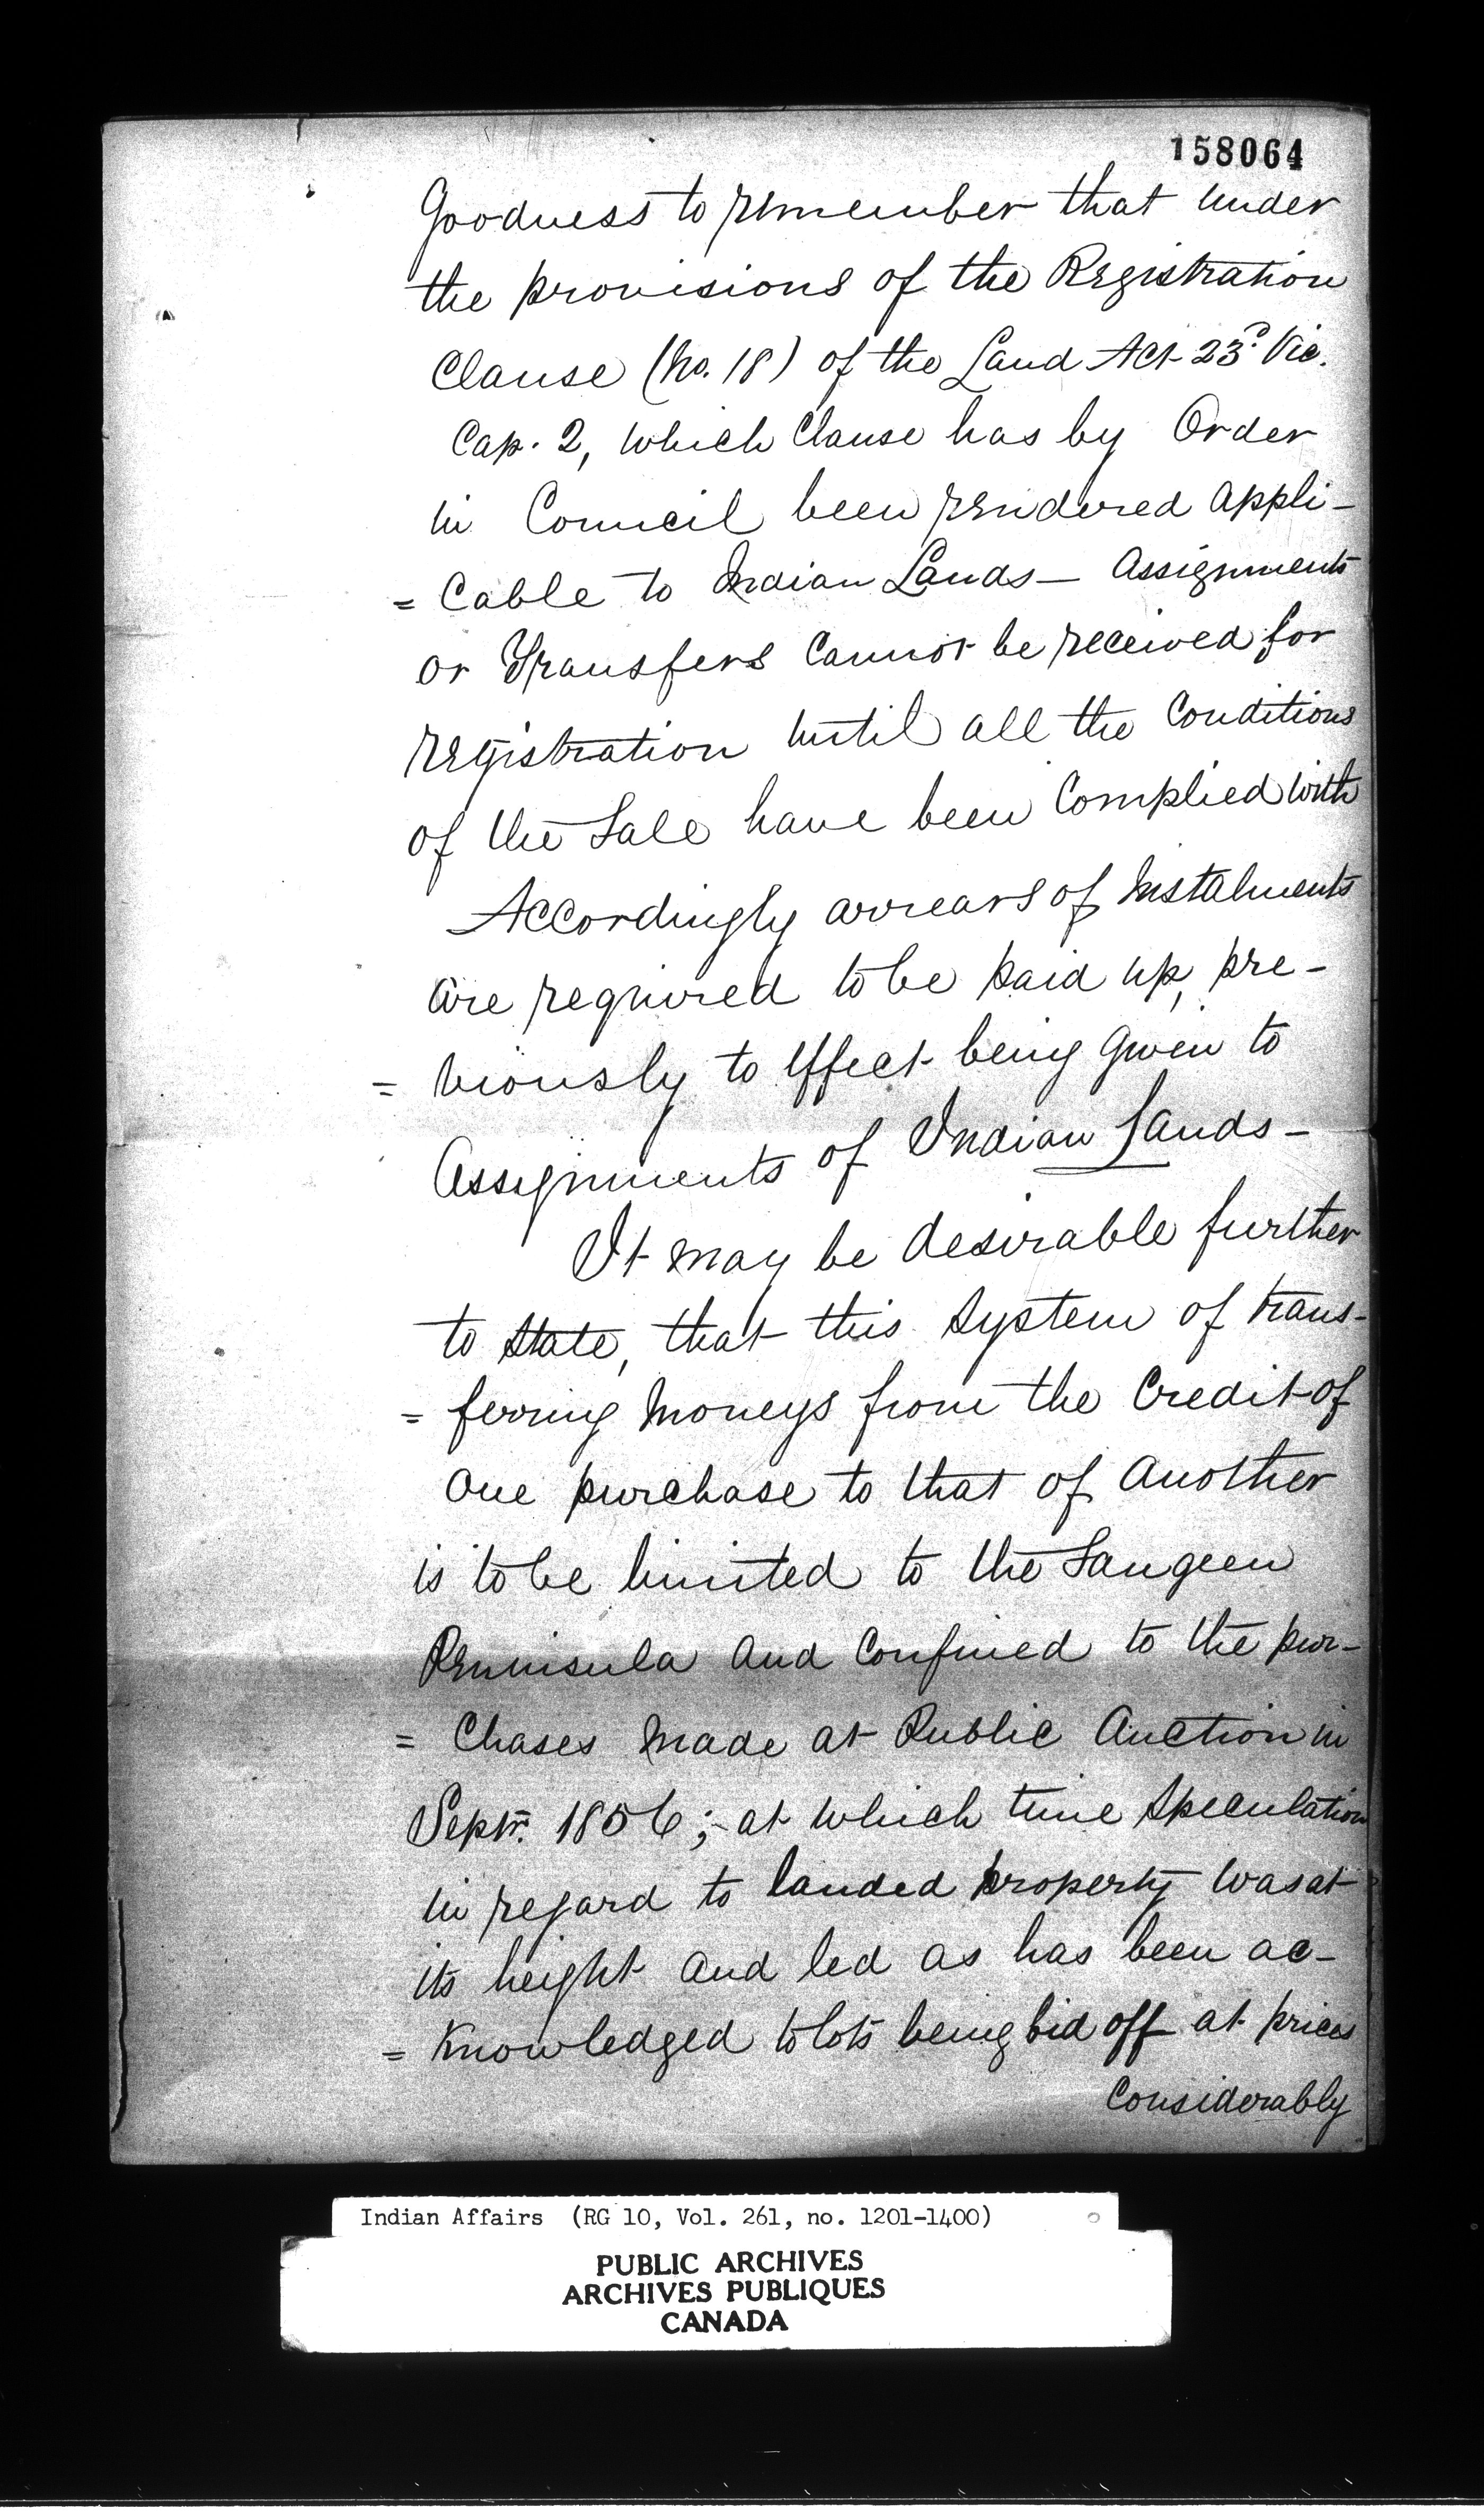 158064
Goodness to remember that under
the provisions of the Registration
Clause (No. 18) of the Land Act 23d Vic.
Cap. 2, which Clause has by Order
in Council been rendered appli-
= cable to Indian Lands — Assignments
or Transfers cannot be received for
registration until all the Conditions
of the Sale have been Complied with
Accordingly arrears of Instalments
are required to be paid up, pre-
= viously to effect being given to
Assignments of Indian Lands -
It may be desirable further
to state, that this System of trans-
= ferring Moneys from the Credit of
one purchase to that of another
is to be limited to the Saugeen
Peninsula and Confined to the pur-
= Chases made at Public Auction in
Septr. 1856; at which time Speculation
in regard to landed property was at
its height and led as has been ac-
= knowledged to lots being bid off at prices
Considerably
Indian Affairs (RG 10, Vol. 261, no. 1201-1400)
PUBLIC ARCHIVES
ARCHIVES PUBLIQUES
CANADA